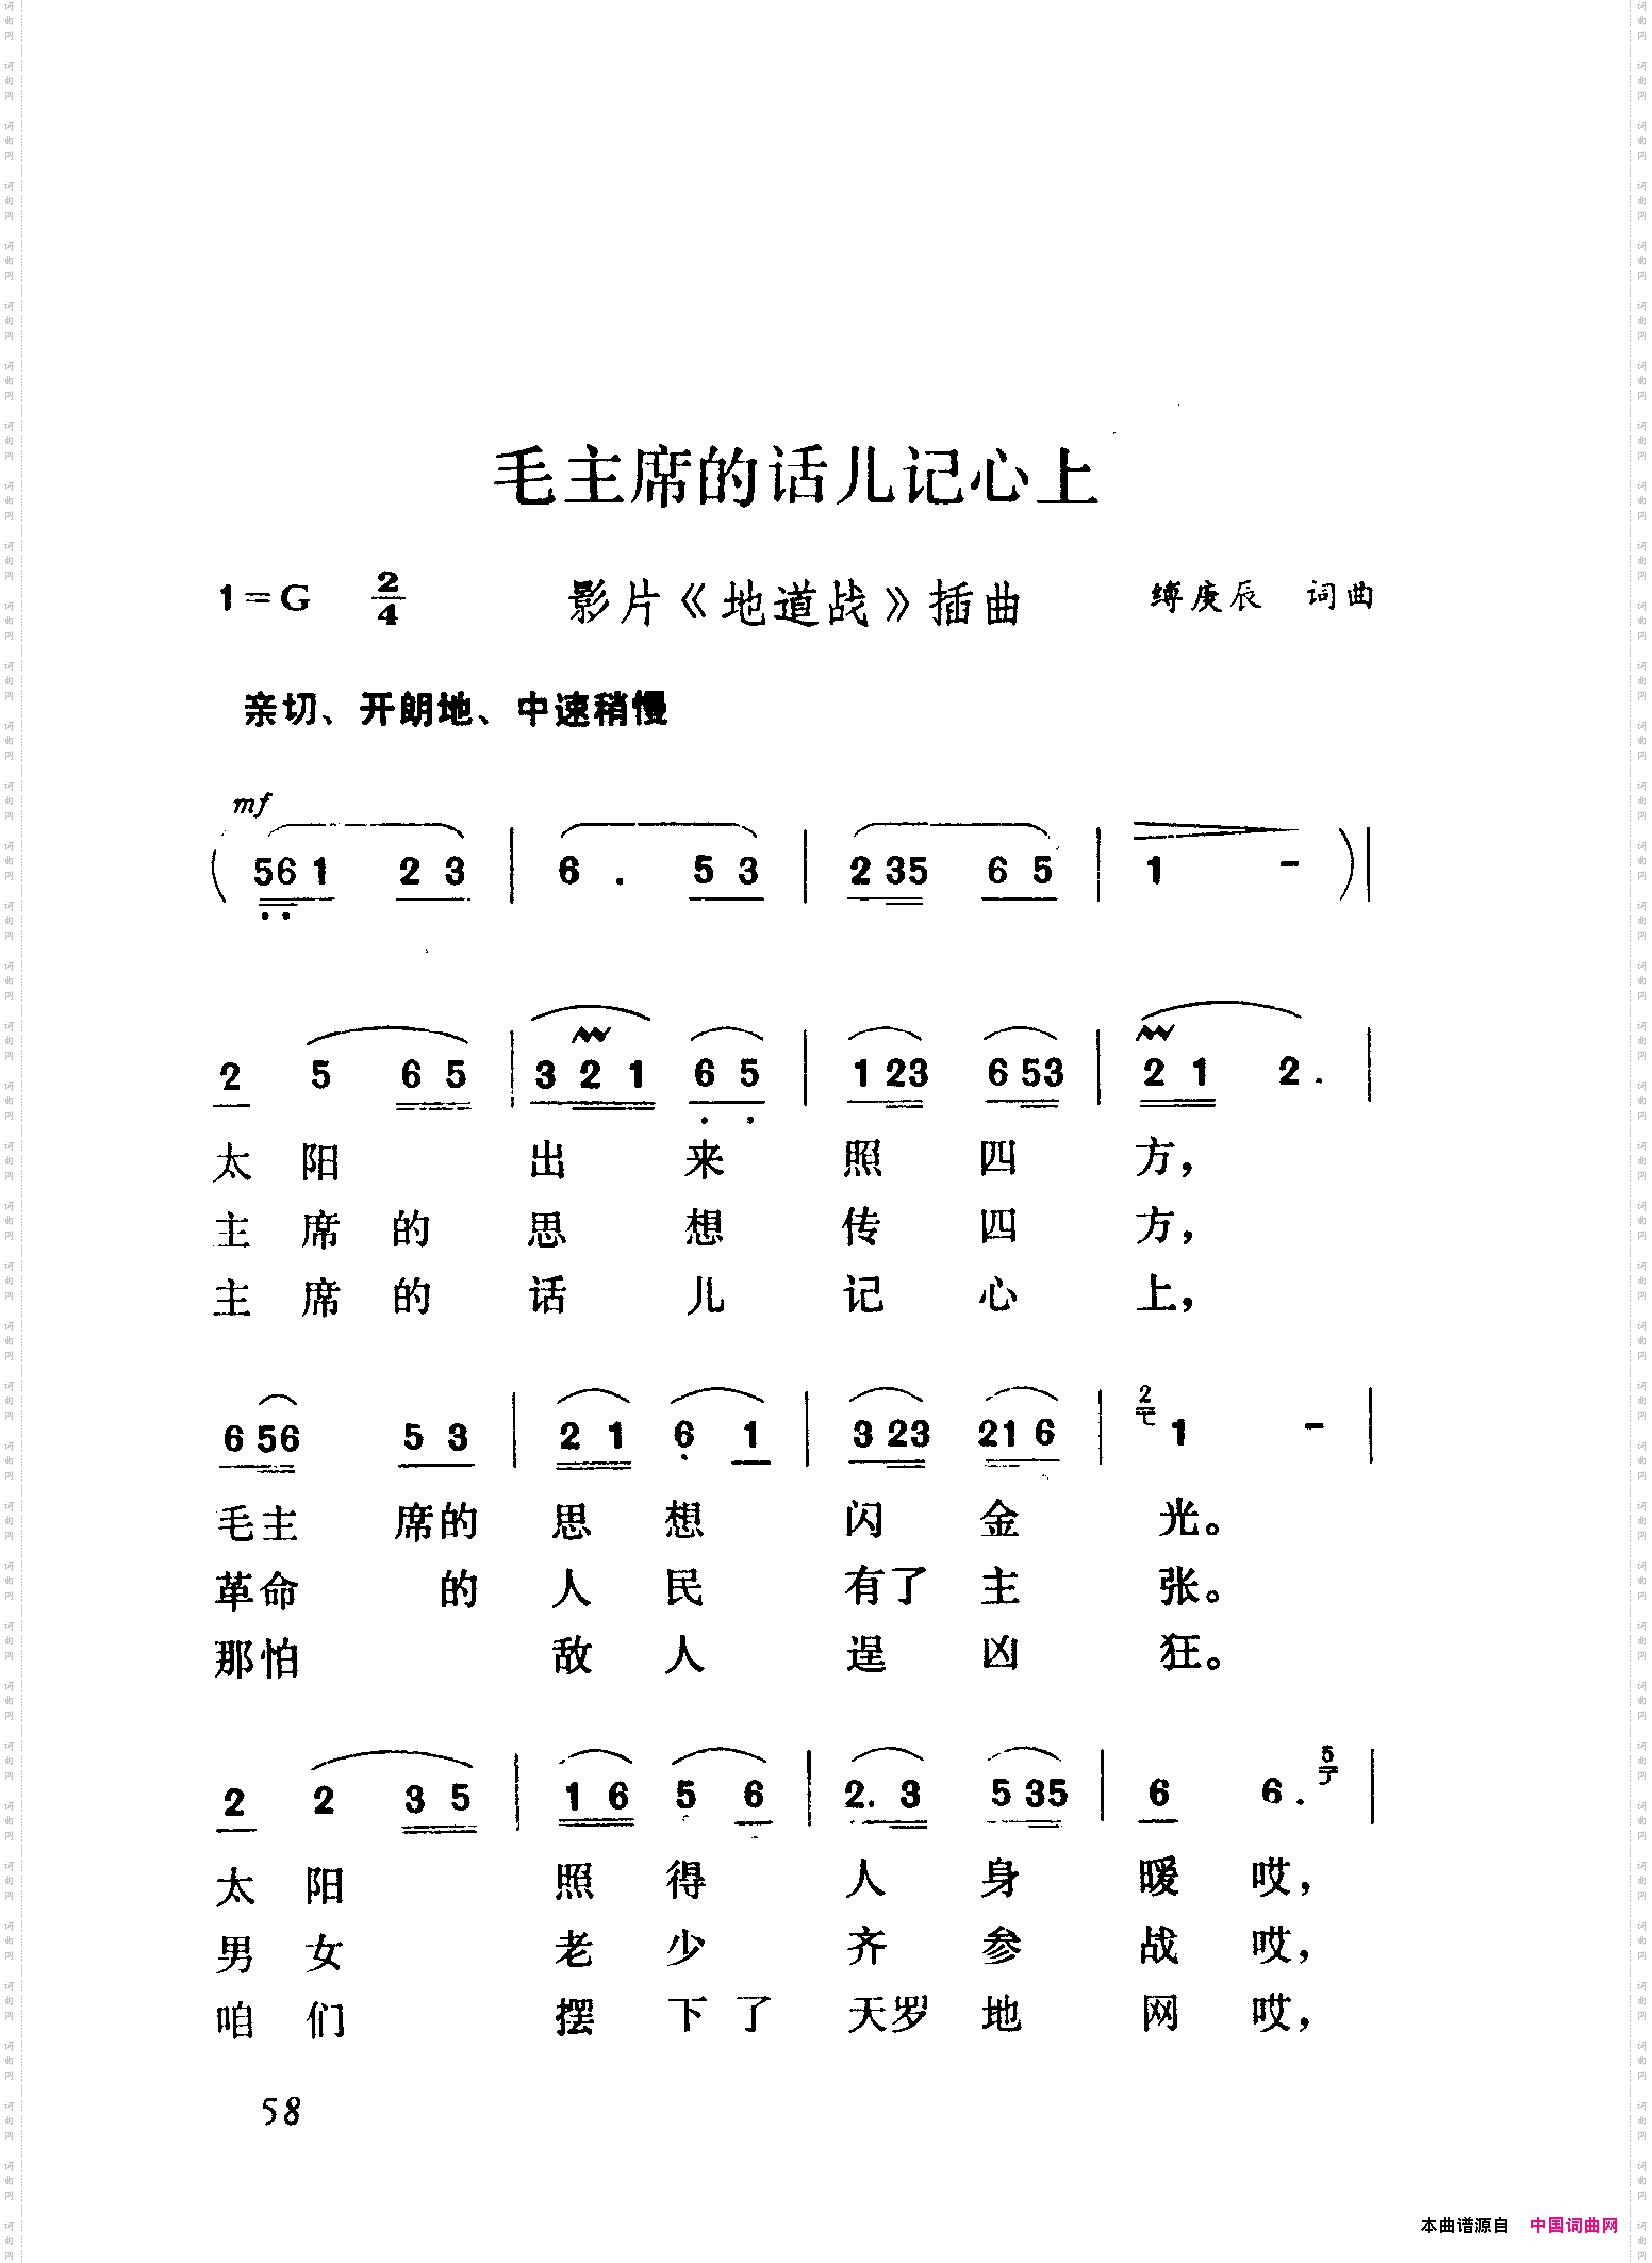 毛主席的话儿记心上
1=G 2/4 影片《地道战》插曲 缚庚辰 词曲
亲切、开朗地、中速稍慢
mf
( 561 23 | 6 . 53 | 235 65 | 1 - ) |
2 5 65 | 321 65 | 123 653 | 21 2. |
太阳 出来 照四方，
主席的思想 传四方，
主席的话儿 记心上，
656 53 | 21 6 1 | 323 216 | 2 1 - |
毛主席的思想闪金光。
革命的人民有了主张。
那怕敌人逞凶狂。
2 2 35 | 16 5 6 | 2.3 535 | 6 6. 5 |
太阳照得人身暖哎，
男女老少齐参战哎，
咱们摆下了天罗地网哎，
58
本曲谱源自 中国词曲网